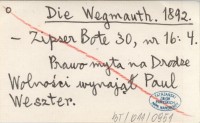 Die Wegmauth. 1892.
- Zipser Bote 30, nr 16: 4.
Prawo myta na Drodze
Wolności wynajął Paul
Weszter.